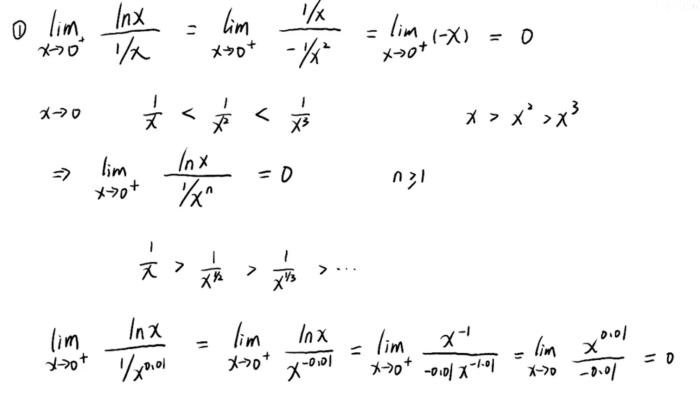 ① lim_{x→0⁺} lnx / (1/x) = lim_{x→0⁺} (1/x) / (-1/x²) = lim_{x→0⁺} (-x) = 0
x→0 1/x < 1/x² < 1/x³ x > x² > x³
⇒ lim_{x→0⁺} lnx / (1/xⁿ) = 0 n⩾1
1/x > 1/x^{1/2} > 1/x^{1/3} > ⋯
lim_{x→0⁺} lnx / (1/x^{0.01}) = lim_{x→0⁺} lnx / x^{-0.01} = lim_{x→0⁺} x^{-1} / (-0.01 x^{-1.01}) = lim_{x→0} x^{0.01} / (-0.01) = 0